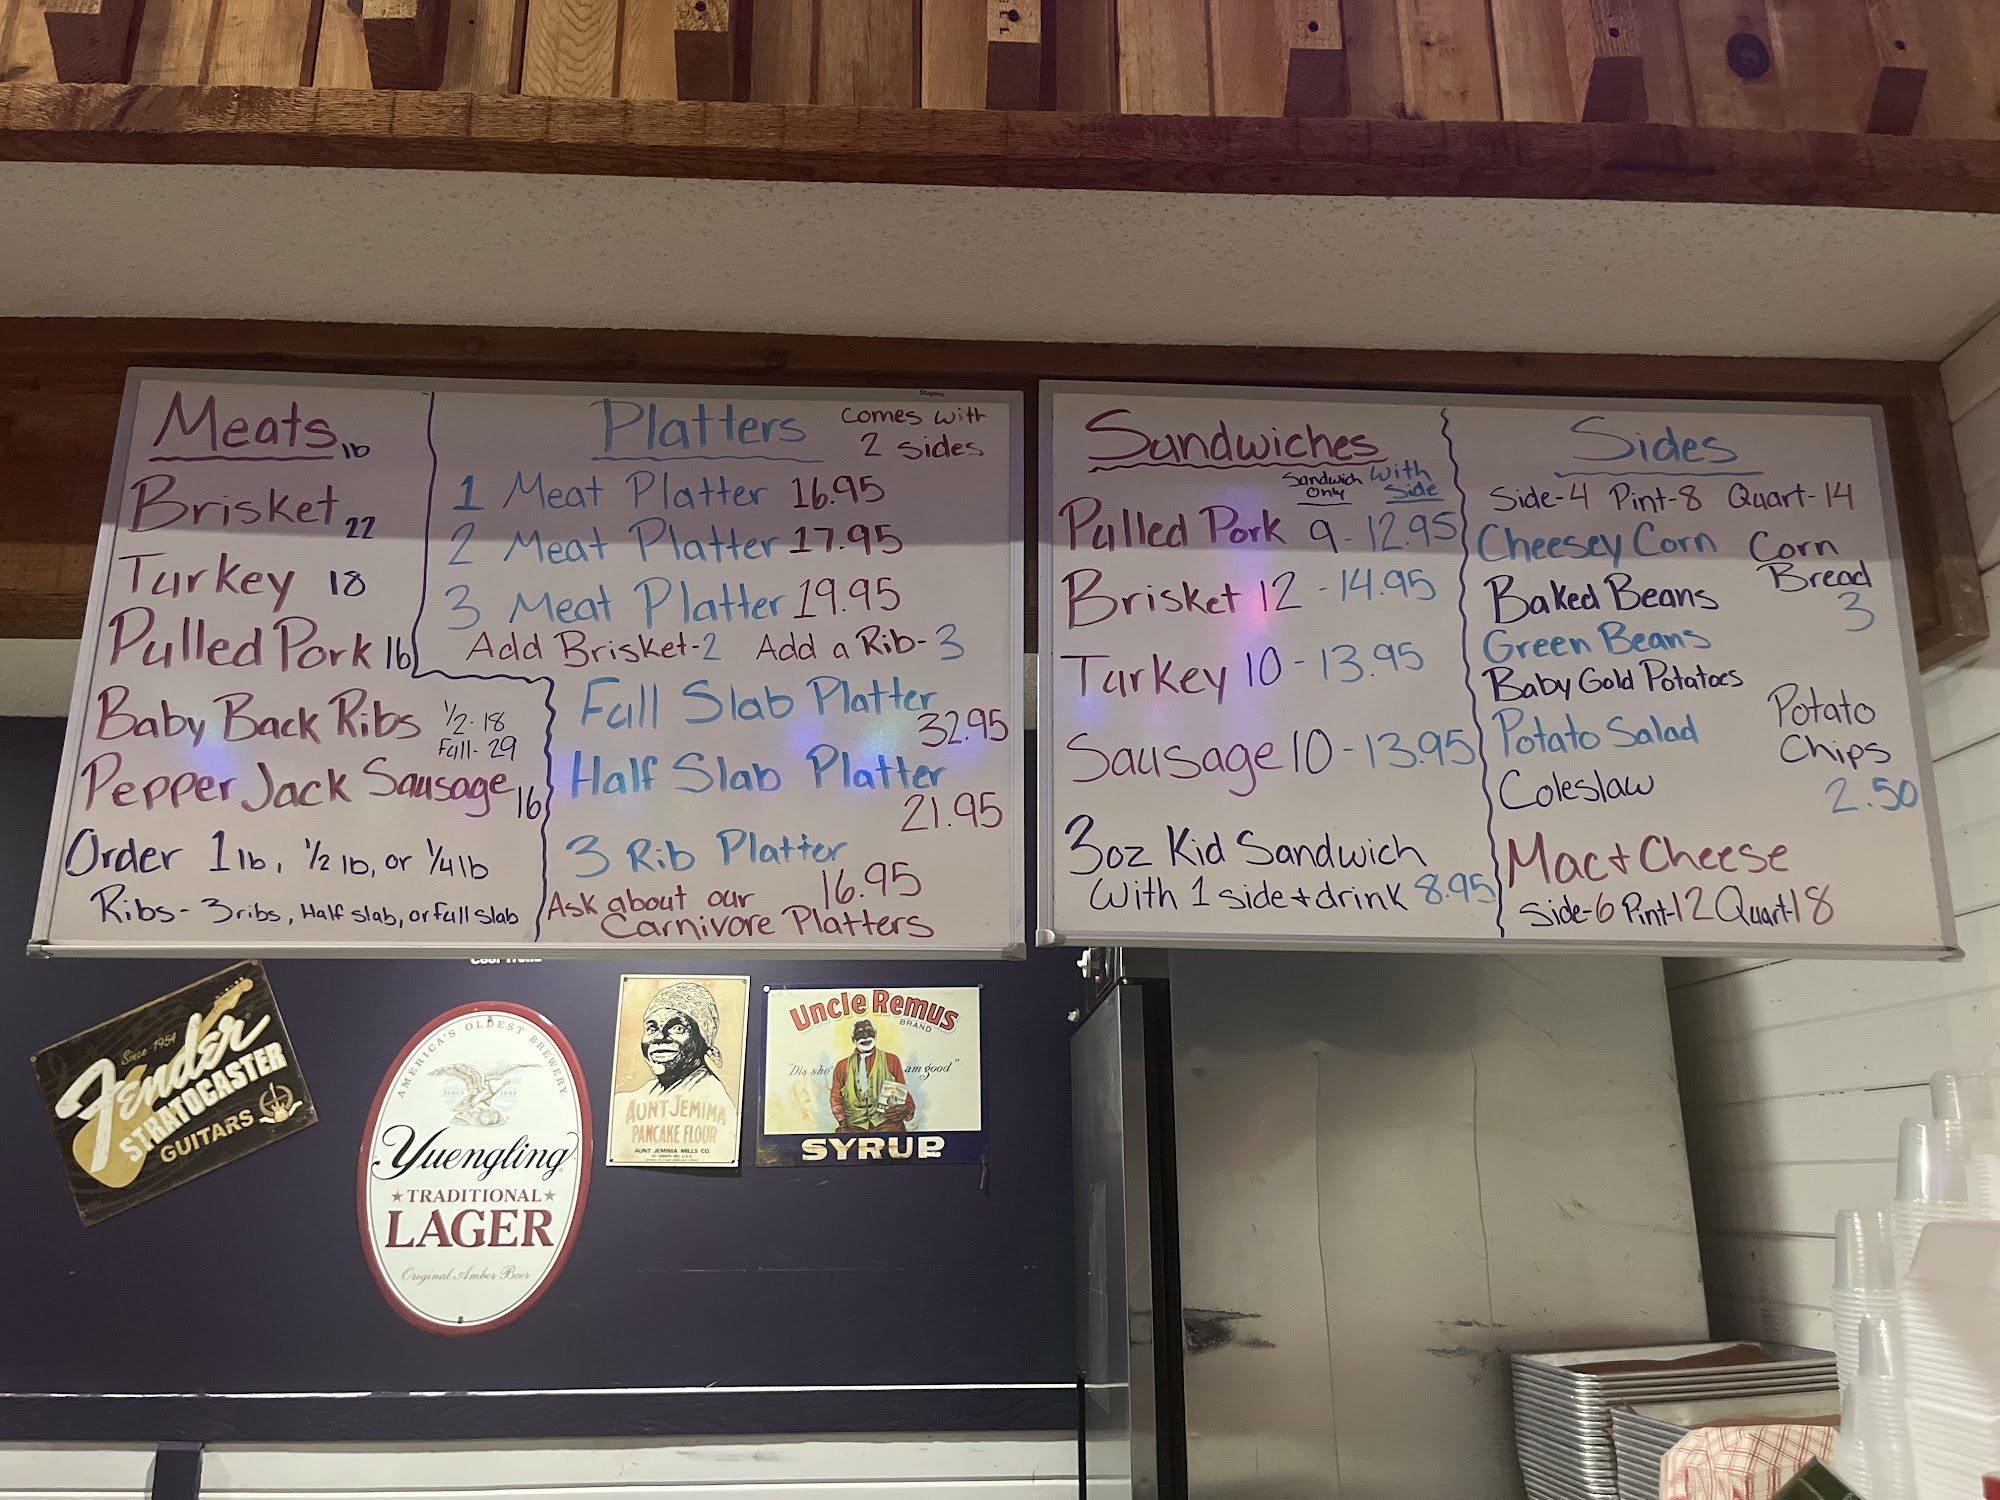 Staples
Meats lb
Brisket 22
Turkey 18
Pulled Pork 16
Baby Back Ribs 1/2-18
Full-29
Pepper Jack Sausage 16
Order 1 lb, 1/2 lb, or 1/4 lb
Ribs-3 ribs, Half slab, or full slab
Platters Comes with
2 sides
1 Meat Platter 16.95
2 Meat Platter 17.95
3 Meat Platter 19.95
Add Brisket-2 Add a Rib-3
Full Slab Platter
32.95
Half Slab Platter
21.95
3 Rib Platter
16.95
Ask about our
Carnivore Platters
Sandwiches
Sandwich Only
With Side
Pulled Pork 9-12.95
Brisket 12-14.95
Turkey 10-13.95
Sausage 10-13.95
3oz Kid Sandwich
With 1 side + drink 8.95
Sides
Side-4 Pint-8 Quart-14
Cheesey Corn
Baked Beans
Green Beans
Baby Gold Potatoes
Potato Salad
Coleslaw
Corn
Bread
3
Potato
Chips
2.50
Mac + Cheese
Side-6 Pint-12 Quart-18
Since 1954
Fender
STRATOCASTER
GUITARS
AMERICA'S OLDEST BREWERY
Yuengling
TRADITIONAL
LAGER
Original Amber Beer
AUNT JEMIMA
PANCAKE FLOUR
AUNT JEMIMA MILLS CO.
Uncle Remus
BRAND
"Dis sho' am good"
SYRUP